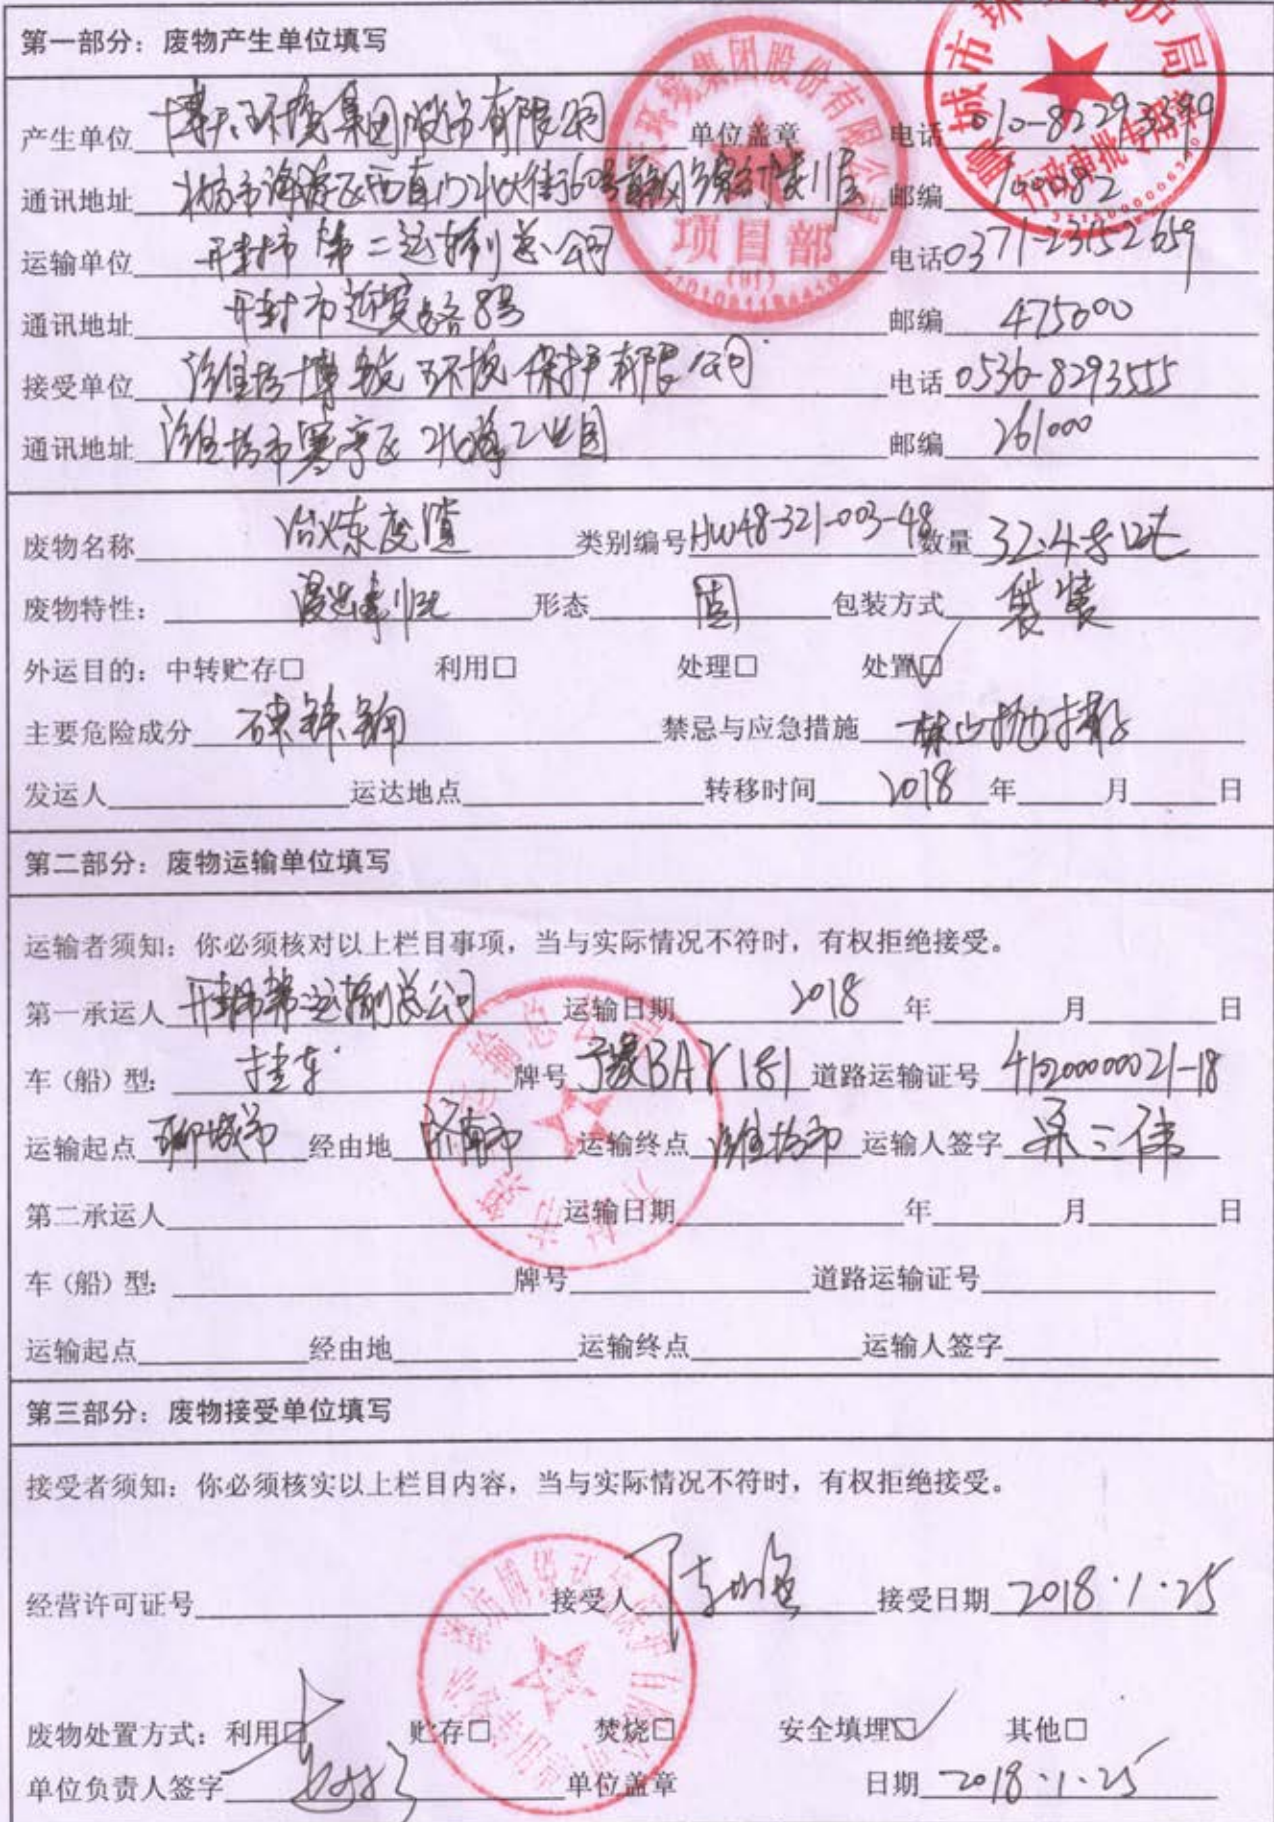 第一部分：废物产生单位填写
产生单位 博天环境集团股份有限公司 单位盖章 电话 010-82293399
通讯地址 北京市海淀区西直门北大街60号首钢综合楼11层 邮编 100082
运输单位 开封市第二运输总公司 电话 0371-23152659
通讯地址 开封市近贤路8号 邮编 475000
接受单位 潍坊博锐环境保护有限公司 电话 0536-8293555
通讯地址 潍坊市寒亭区北海工业园 邮编 261000
废物名称 冶炼废渣 类别编号 HW48-321-003-48 数量 32.48吨
废物特性： 浸出毒性 形态 固 包装方式 袋装
外运目的：中转贮存□ 利用□ 处理□ 处置☑
主要危险成分 砷 锌 镉 禁忌与应急措施 禁止抛撒
发运人 运达地点 转移时间 2018 年 月 日
第二部分：废物运输单位填写
运输者须知：你必须核对以上栏目事项，当与实际情况不符时，有权拒绝接受。
第一承运人 开封市第二运输总公司 运输日期 2018 年 月 日
车（船）型: 挂车 牌号 豫BAY181 道路运输证号 412000021-18
运输起点 聊城市 经由地 济南市 运输终点 潍坊市 运输人签字
第二承运人 运输日期 年 月 日
车（船）型: 牌号 道路运输证号
运输起点 经由地 运输终点 运输人签字
第三部分：废物接受单位填写
接受者须知：你必须核实以上栏目内容，当与实际情况不符时，有权拒绝接受。
经营许可证号 接受人 接受日期 2018.1.25
废物处置方式：利用□ 贮存□ 焚烧□ 安全填埋☑ 其他□
单位负责人签字 单位盖章 日期 2018.1.25
环境集团股份有限公司
项目部
城市环 护局
行政审批专用章